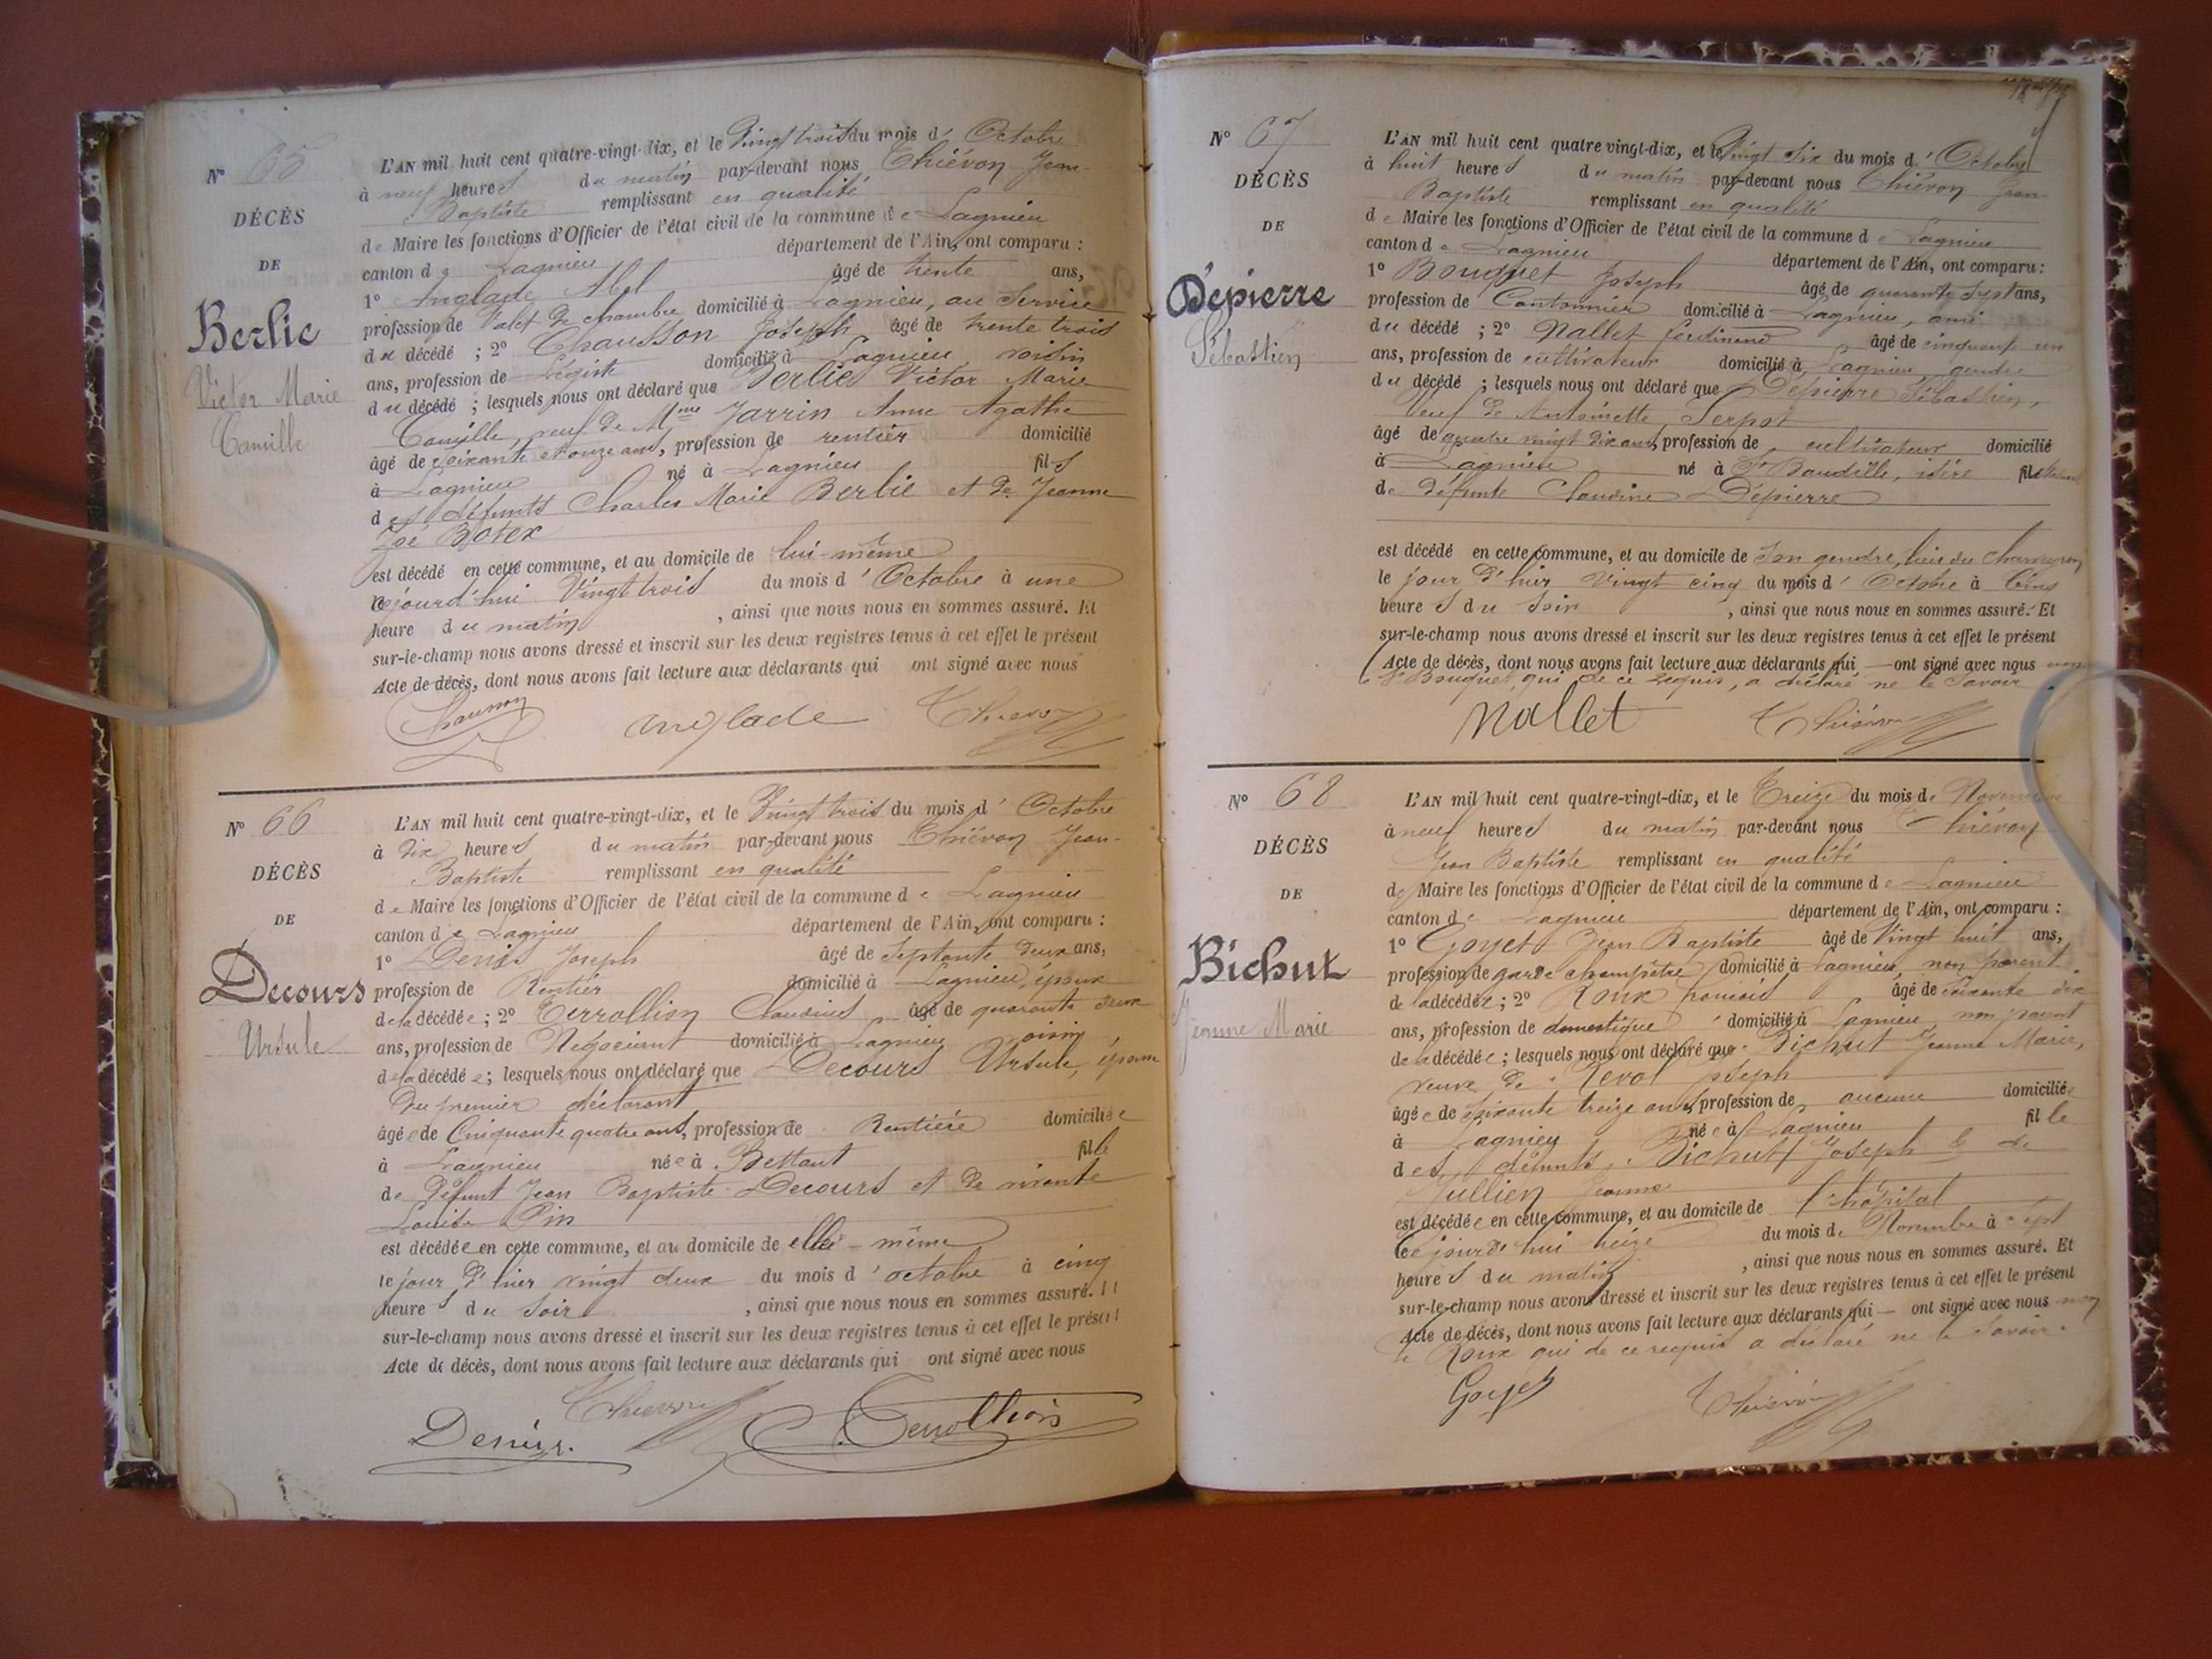 N° 65
DÉCÈS
DE
Berlie
Victor Marie
Camille
L'AN mil huit cent quatre-vingt-dix, et le Vingt trois du mois d' Octobre
à neuf heures du matin par-devant nous Chiévon Jean-
Baptiste remplissant en qualité
de Maire les fonctions d'Officier de l'état civil de la commune de Lagnieu
canton de Lagnieu département de l'Ain, ont comparu :
1° Anglade Abel âgé de trente ans,
profession de Valet de chambre domicilié à Lagnieu, au Service
du décédé ; 2° Chausson Joseph âgé de trente trois
ans, profession de domicilié à Lagnieu voisin
du décédé ; lesquels nous ont déclaré que Berlie Victor Marie
Camille, veuf de Mme Jarrin Anne Agathe
âgé de soixante et onze ans, profession de rentier domicilié
à Lagnieu né à Lagnieu fils
des défunts Charles Marie Berlie et de Jeanne
Zoé Botex
est décédé en cette commune, et au domicile de lui-même
cejourd'hui Vingt trois du mois d' Octobre à une
heure du matin, ainsi que nous nous en sommes assuré. Et
sur-le-champ nous avons dressé et inscrit sur les deux registres tenus à cet effet le présent
Acte de décès, dont nous avons fait lecture aux déclarants qui ont signé avec nous
Chausson Anglade Chiévon
N° 66
DÉCÈS
DE
Decours
Ursule
L'AN mil huit cent quatre-vingt-dix, et le Vingt trois du mois d' Octobre
à dix heures du matin par-devant nous Chiévon Jean-
Baptiste remplissant en qualité
de Maire les fonctions d'Officier de l'état civil de la commune de Lagnieu
canton de Lagnieu département de l'Ain, ont comparu :
1° Joseph âgé de Septante deux ans,
profession de Rentier domicilié à Lagnieu, époux
de la décédée ; 2° Terrollion Claudius âgé de quarante deux
ans, profession de Négociant domicilié à Lagnieu voisin
de la décédée ; lesquels nous ont déclaré que Decours Ursule, épouse
du premier déclarant
âgée de Cinquante quatre ans, profession de Rentière domiciliée
à Lagnieu née à Bettant fille
de défunt Jean Baptiste Decours et de vivante
Louise Pin
est décédée en cette commune, et au domicile de elle-même
le jour d'hier vingt deux du mois d' octobre à cinq
heures du soir, ainsi que nous nous en sommes assuré. Et
sur-le-champ nous avons dressé et inscrit sur les deux registres tenus à cet effet le présent
Acte de décès, dont nous avons fait lecture aux déclarants qui ont signé avec nous
Chiévon
C. Terrollion
N° 67
DÉCÈS
DE
Dépierre
Sébastien
L'AN mil huit cent quatre vingt-dix, et le Vingt Six du mois d' Octobre
à huit heures du matin par-devant nous Chiévon Jean-
Baptiste remplissant en qualité
de Maire les fonctions d'Officier de l'état civil de la commune de Lagnieu
canton de Lagnieu département de l'Ain, ont comparu :
1° Bouquet Joseph âgé de quarante Sept ans,
profession de Cantonnier domicilié à Lagnieu, ami
du décédé ; 2° Nallet Ferdinand âgé de cinquante un
ans, profession de cultivateur domicilié à Lagnieu, gendre
du décédé ; lesquels nous ont déclaré que Dépierre Sébastien,
Veuf de Antoinette Serpot
âgé de quatre vingt dix ans, profession de cultivateur domicilié
à Lagnieu né à St Baudille, isère fils
de défunte Claudine Dépierre
est décédé en cette commune, et au domicile de Son gendre, lieu du Charveyron
le jour d'hier Vingt cinq du mois d' Octobre à Cinq
heures du Soir, ainsi que nous nous en sommes assuré. Et
sur-le-champ nous avons dressé et inscrit sur les deux registres tenus à cet effet le présent
Acte de décès, dont nous avons fait lecture aux déclarants qui — ont signé avec nous non
Bouquet, qui de ce requis, a déclaré ne le Savoir
Nallet Chiévon
N° 68
DÉCÈS
DE
Bichut
Jeanne Marie
L'AN mil huit cent quatre-vingt-dix, et le Treize du mois de Novembre
à neuf heures du matin par-devant nous Chiévon
Jean Baptiste remplissant en qualité
de Maire les fonctions d'Officier de l'état civil de la commune de Lagnieu
canton de Lagnieu département de l'Ain, ont comparu :
1° Goyet Jean Baptiste âgé de Vingt huit ans,
profession de garde champêtre domicilié à Lagnieu, non parent
de la décédée ; 2° Roux François âgé de soixante dix
ans, profession de domestique domicilié à Lagnieu non parent
de la décédée ; lesquels nous ont déclaré que Bichut Jeanne Marie,
veuve de Revol Joseph
âgée de Soixante treize ans, profession de aucune domiciliée
à Lagnieu née à Lagnieu fille
des défunts Bichut Joseph & de
Jullien Jeanne
est décédée en cette commune, et au domicile de l'hôpital
cejourd'hui treize du mois de Novembre à Sept
heures du matin, ainsi que nous nous en sommes assuré. Et
sur-le-champ nous avons dressé et inscrit sur les deux registres tenus à cet effet le présent
Acte de décès, dont nous avons fait lecture aux déclarants qui — ont signé avec nous non
le Roux qui de ce requis a déclaré ne le Savoir.
Goyet Chiévon